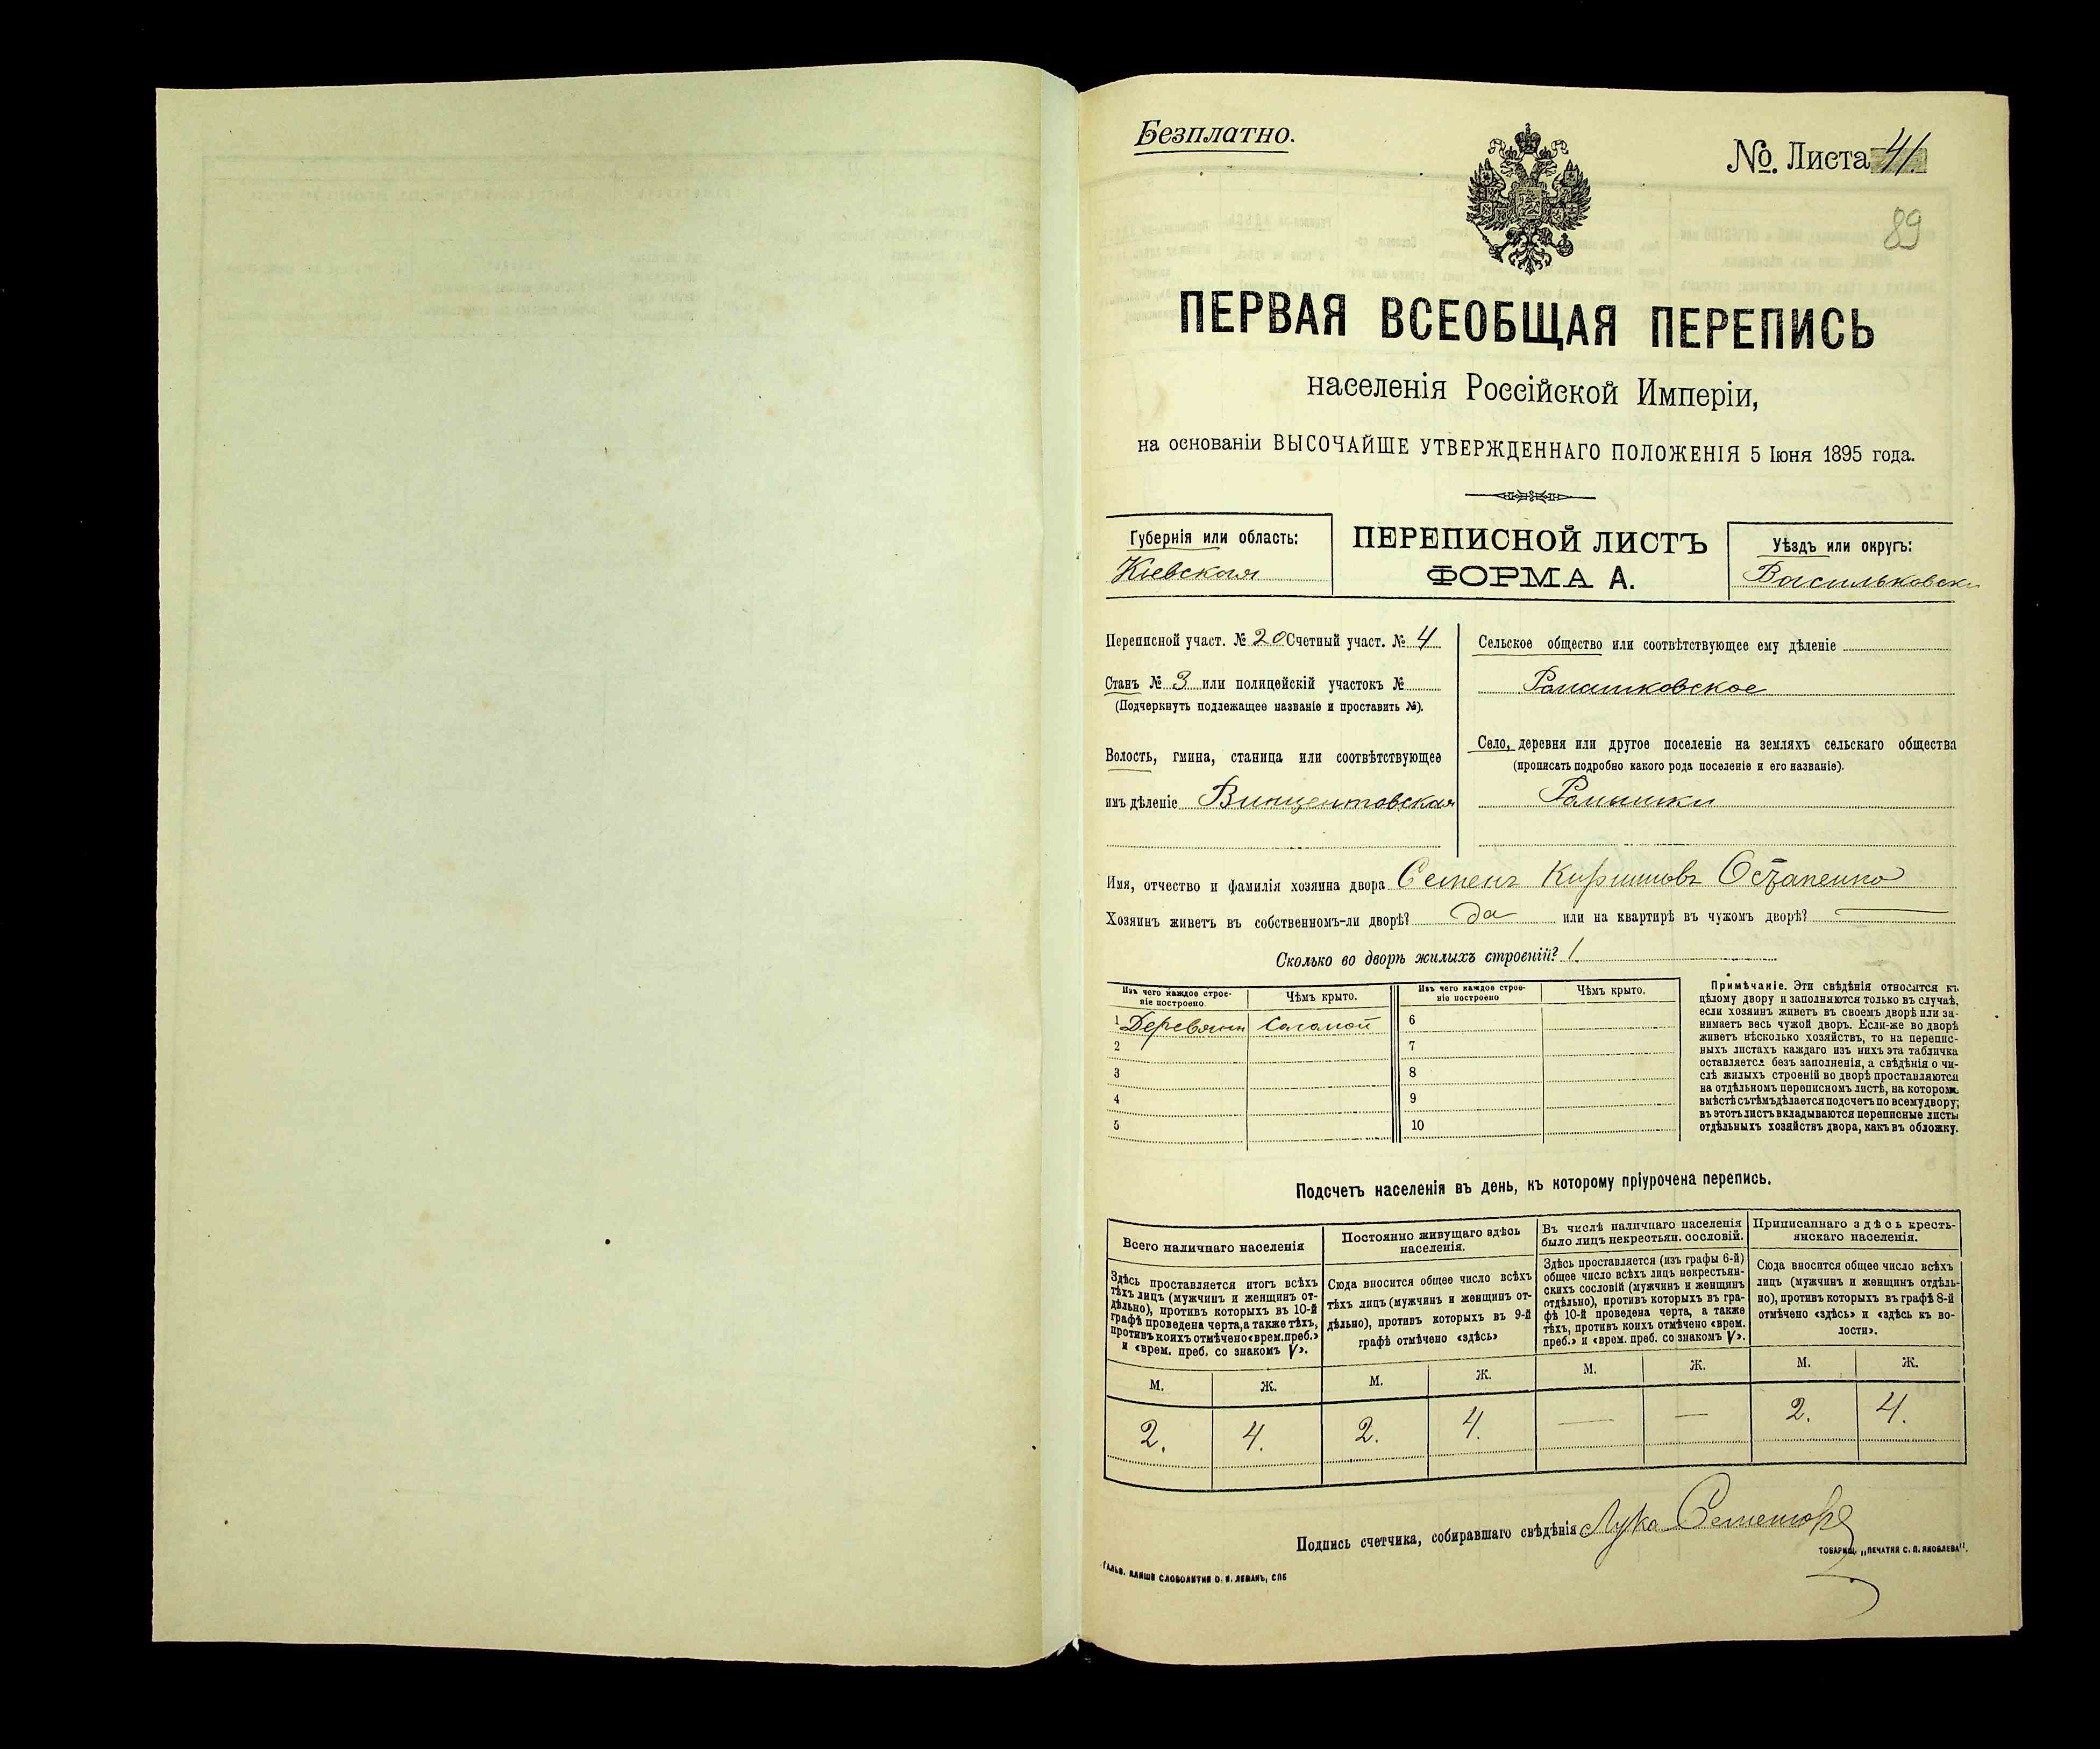 Безплатно.
№. Листа 41.
89
ПЕРВАЯ ВСЕОБЩАЯ ПЕРЕПИСЬ
населенія Россійской Имперіи,
на основаніи ВЫСОЧАЙШЕ УТВЕРЖДЕННАГО ПОЛОЖЕНІЯ 5 Іюня 1895 года.
Губернія или область:
Кіевская
ПЕРЕПИСНОЙ ЛИСТЪ
ФОРМА А.
Уѣздъ или округъ:
Васильковск
Переписной участ. № 20 Счетный участ. № 4
Станъ № 3 или полицейскій участокъ №
(Подчеркнуть подлежащее названіе и проставить №).
Волость, гмина, станица или соотвѣтствующее
имъ дѣленіе Винцентовская
Сельское общество или соотвѣтствующее ему дѣленіе
Ромашковское
Село, деревня или другое поселеніе на земляхъ сельскаго общества
(прописать подробно какого рода поселеніе и его названіе).
Ромашки
Имя, отчество и фамилія хозяина двора Семенъ Остапенко
Хозяинъ живетъ въ собственномъ-ли дворѣ? да или на квартирѣ въ чужомъ дворѣ?
Сколько во дворѣ жилыхъ строеній? 1
Изъ чего каждое строе-
ніе построено.
Чѣмъ крыто.
Изъ чего каждое строе-
ніе построено
Чѣмъ крыто.
1 Деревяни Соломой 6
2 7
3 8
4 9
5 10
Примѣчаніе. Эти свѣдѣнія относятся къ
цѣлому двору и заполняются только въ случаѣ,
если хозяинъ живетъ въ своемъ дворѣ или за-
нимаетъ весь чужой дворъ. Если-же во дворѣ
живетъ нѣсколько хозяйствъ, то на перепис-
ныхъ листахъ каждаго изъ нихъ эта табличка
оставляется безъ заполненія, а свѣдѣнія о чи-
слѣ жилыхъ строеній во дворѣ проставляются
на отдѣльномъ переписномъ листѣ, на которомъ
вмѣстѣ съ тѣмъ дѣлается подсчетъ по всему двору;
въ этотъ листъ вкладываются переписные листы
отдѣльныхъ хозяйствъ двора, какъ въ обложку.
Подсчетъ населенія въ день, къ которому пріурочена перепись.
Всего наличнаго населенія
Здѣсь проставляется итогъ всѣхъ
тѣхъ лицъ (мужчинъ и женщинъ от-
дѣльно), противъ которыхъ въ 10-й
графѣ проведена черта, а также тѣхъ,
противъ коихъ отмѣчено «врем. преб.»
и «врем. преб. со знакомъ V».
Постоянно живущаго здѣсь
населенія.
Сюда вносится общее число всѣхъ
тѣхъ лицъ (мужчинъ и женщинъ от-
дѣльно), противъ которыхъ въ 9-й
графѣ отмѣчено «здѣсь»
Въ числѣ наличнаго населенія
было лицъ некрестьян. сословій.
Здѣсь проставляется (изъ графы 6-й)
общее число всѣхъ лицъ некрестьян-
скихъ сословій (мужчинъ и женщинъ
отдѣльно), противъ которыхъ въ гра-
фѣ 10-й проведена черта, а также
тѣхъ, противъ коихъ отмѣчено «врем.
преб.» и «врем. преб. со знакомъ V».
Приписаннаго здѣсь кресть-
янскаго населенія.
Сюда вносится общее число всѣхъ
лицъ (мужчинъ и женщинъ отдѣль-
но), противъ которыхъ въ графѣ 8-й
отмѣчено «здѣсь» и «здѣсь къ во-
лости».
М. Ж. М. Ж. М. Ж. М. Ж.
2. 4. 2. 4. — — 2. 4.
Подпись счетчика, собиравшаго свѣдѣнія Лука
ТОВАРИЩ. „ПЕЧАТНЯ С. П. ЯКОВЛЕВА".
ГАЛЬВ. КЛИШЕ СЛОВОЛИТНИ О. И. ЛЕМАНЪ, СПБ